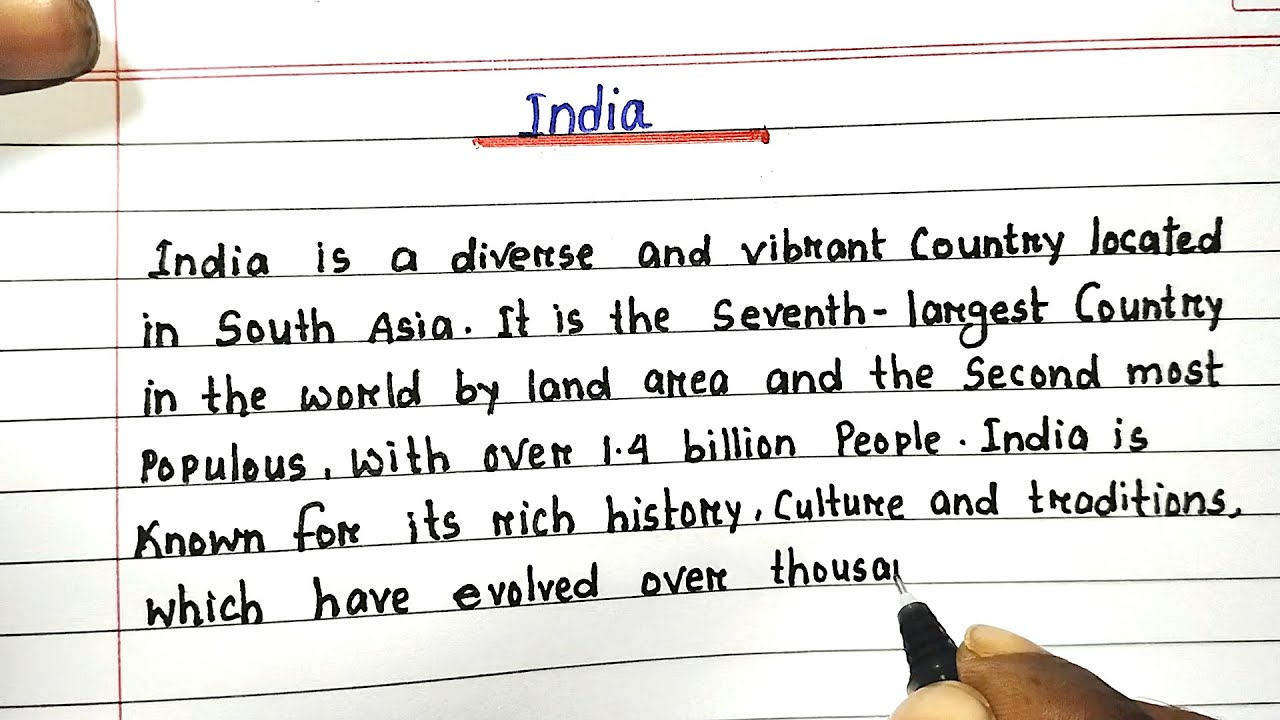 India
India is a diverse and vibrant Country located
in South Asia. It is the Seventh-largest Country
in the world by land area and the Second most
Populous, With over 1.4 billion People. India is
Known for its rich history, Culture and traditions,
Which have evolved over thousa